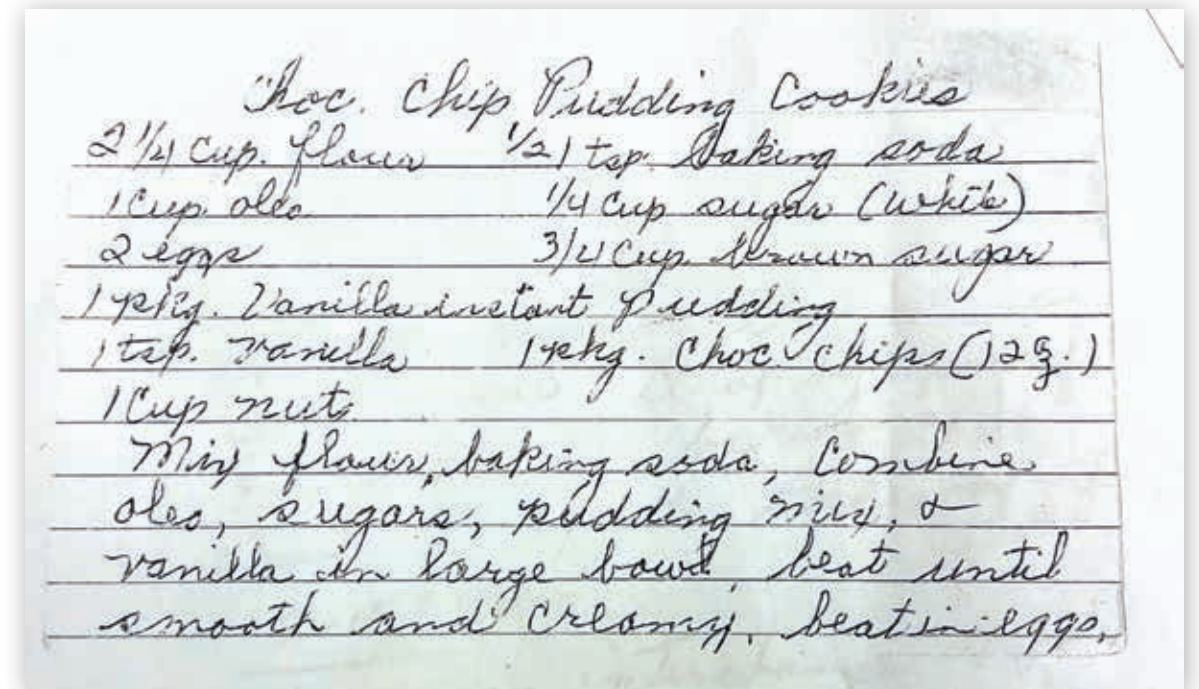 Choc. Chip Pudding Cookies
2 1/4 Cup. flour 1/2 1 tsp. baking soda
1 Cup. oleo 1/4 Cup sugar (white)
2 eggs 3/4 Cup. brown sugar
1 pkg. Vanilla instant Pudding
1 tsp. vanilla 1 pkg. Choc chips (12 oz.)
1 Cup nuts
Mix flour, baking soda, Combine
oleo, sugars, pudding mix, &
vanilla in large bowl, beat until
smooth and creamy, beat in eggs,